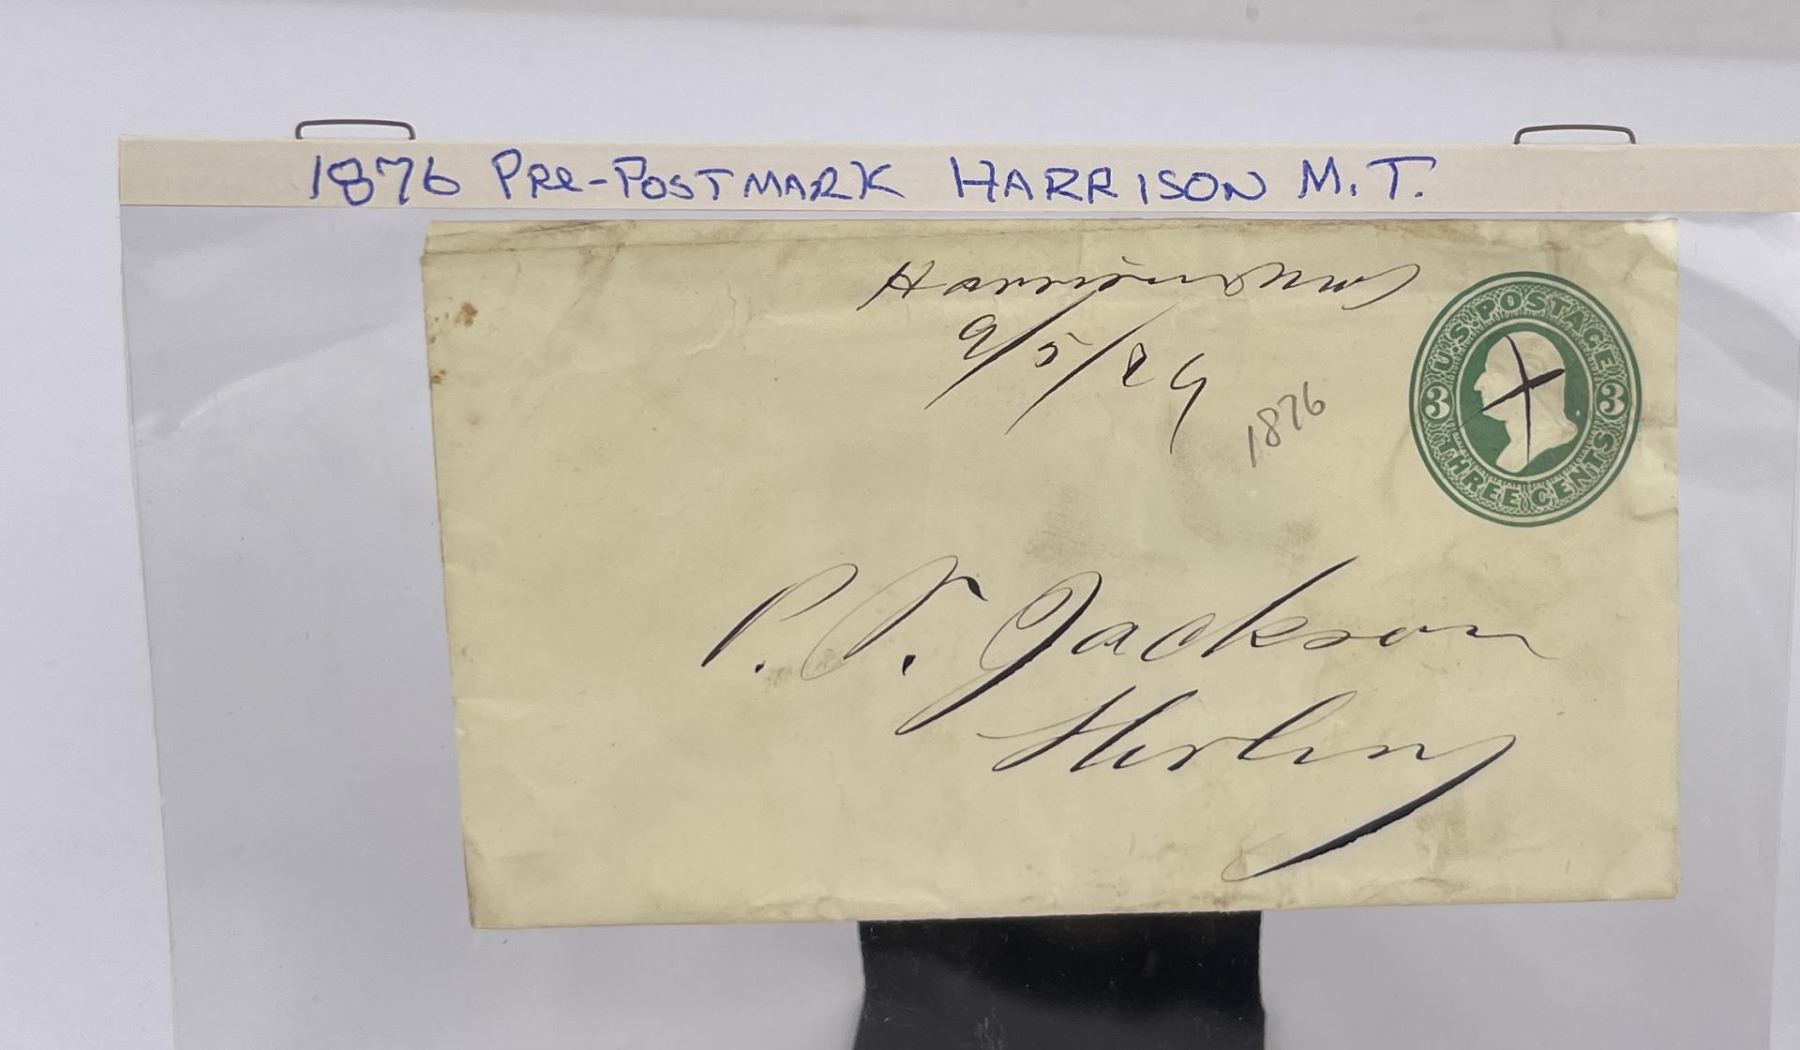 1876 PRE-POSTMARK HARRISON M.T.
Harrison
9/5/
1876
U.S. POSTAGE
3 3
THREE CENTS
P. T. Jackson
Sterling